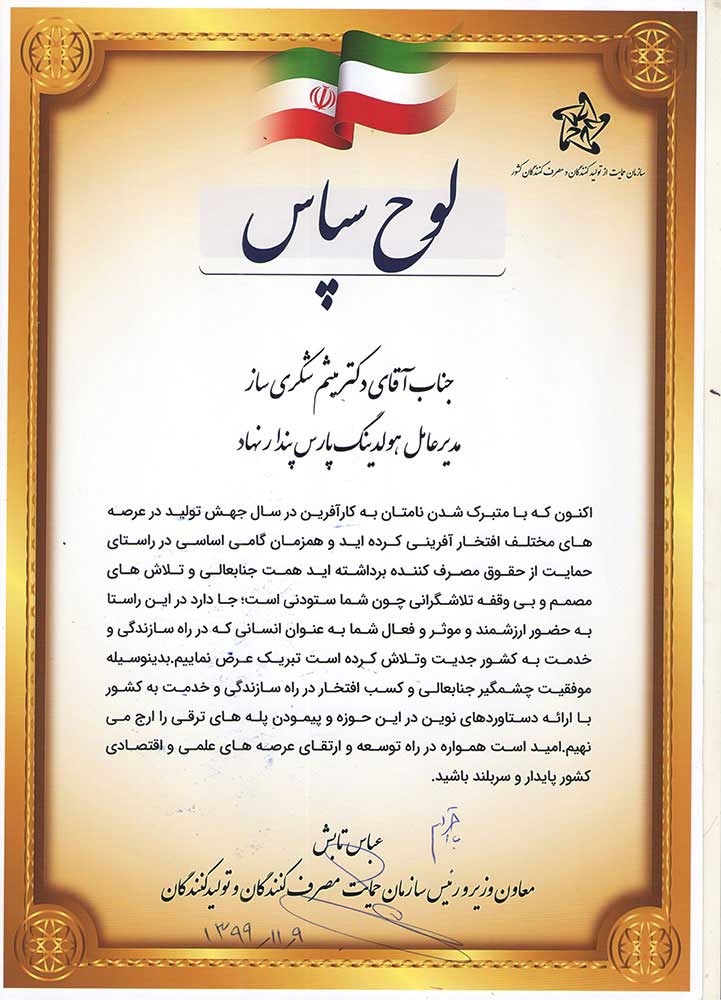 سازمان حمایت از تولید کنندگان و مصرف کنندگان کشور
لوح سپاس
جناب آقای دکتر میثم شکری ساز
مدیرعامل هولدینگ پارس پندار نهاد
اکنون که با متبرک شدن نامتان به کارآفرین در سال جهش تولید در عرصه
های مختلف افتخار آفرینی کرده اید و همزمان گامی اساسی در راستای
حمایت از حقوق مصرف کننده برداشته اید همت جنابعالی و تلاش های
مصمم و بی وقفه تلاشگرانی چون شما ستودنی است؛ جا دارد در این راستا
به حضور ارزشمند و موثر و فعال شما به عنوان انسانی که در راه سازندگی و
خدمت به کشور جدیت وتلاش کرده است تبریک عرض نماییم.بدینوسیله
موفقیت چشمگیر جنابعالی و کسب افتخار در راه سازندگی و خدمت به کشور
با ارائه دستاوردهای نوین در این حوزه و پیمودن پله های ترقی را ارج می
نهیم.امید است همواره در راه توسعه و ارتقای عرصه های علمی و اقتصادی
کشور پایدار و سربلند باشید.
با احترام
عباس تابش
معاون وزیر و رئیس سازمان حمایت مصرف کنندگان و تولید کنندگان
۱۳۹۹/۱۱/۹